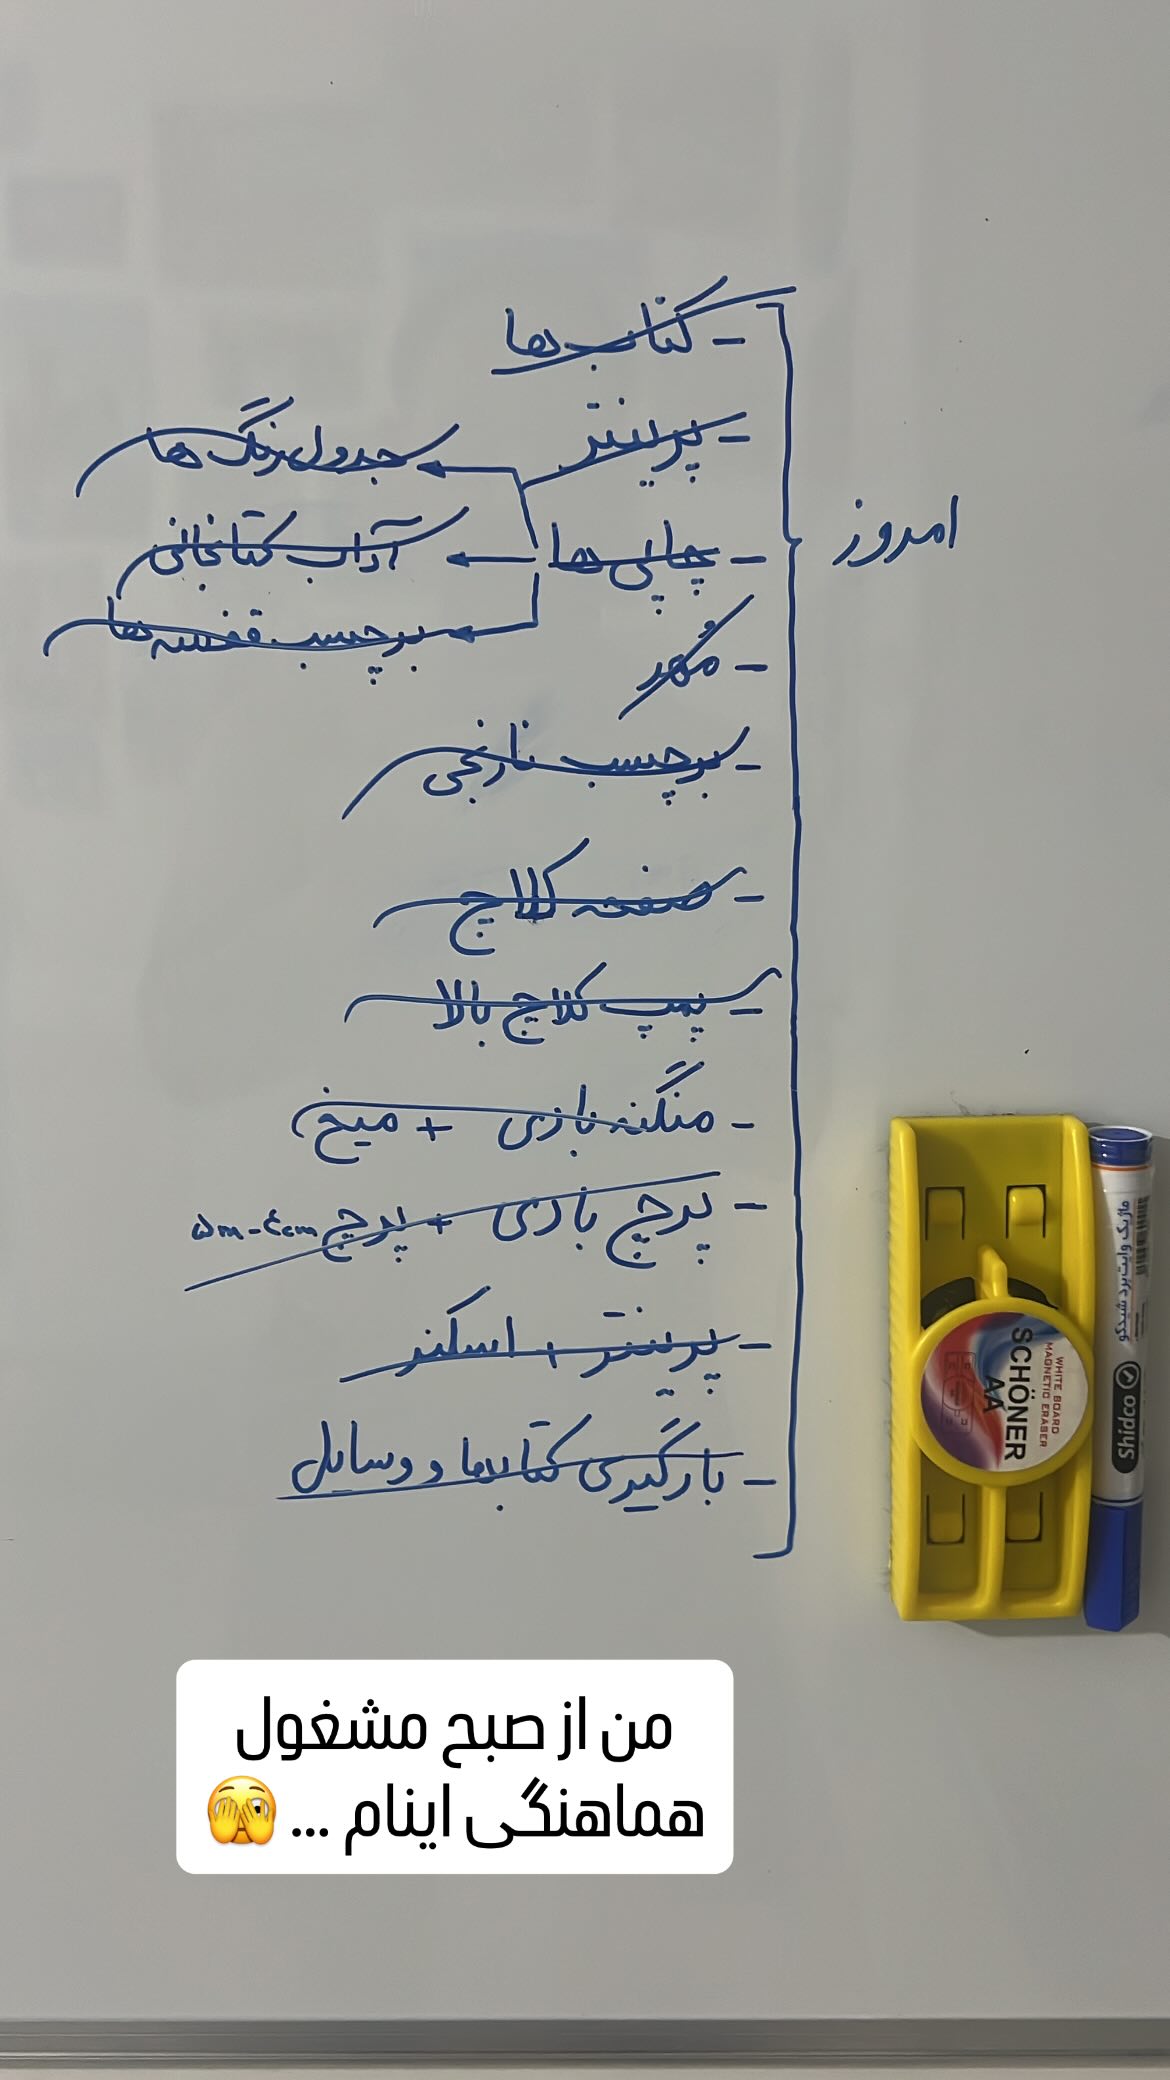 امروز
- کتاب ها
- پرینتر
- چاپی ها
جدول رنگ ها
آداب کتابخانی
برچسب قفسه ها
- مُهر
- برچسب نارنجی
- صفحه کلاچ
- پمپ کلاچ بالا
- منگنه بادی + میخ
- پرچ بادی + پرچ ۵m - ۴cm
- پرینتر + اسکنر
- بارگیری کتابها و وسایل
ماژیک وایت برد شیدکو
Shidco
WHITE BOARD
MAGNETIC ERASER
SCHÖNER
AA
من از صبح مشغول
هماهنگی اینام ... 🫣